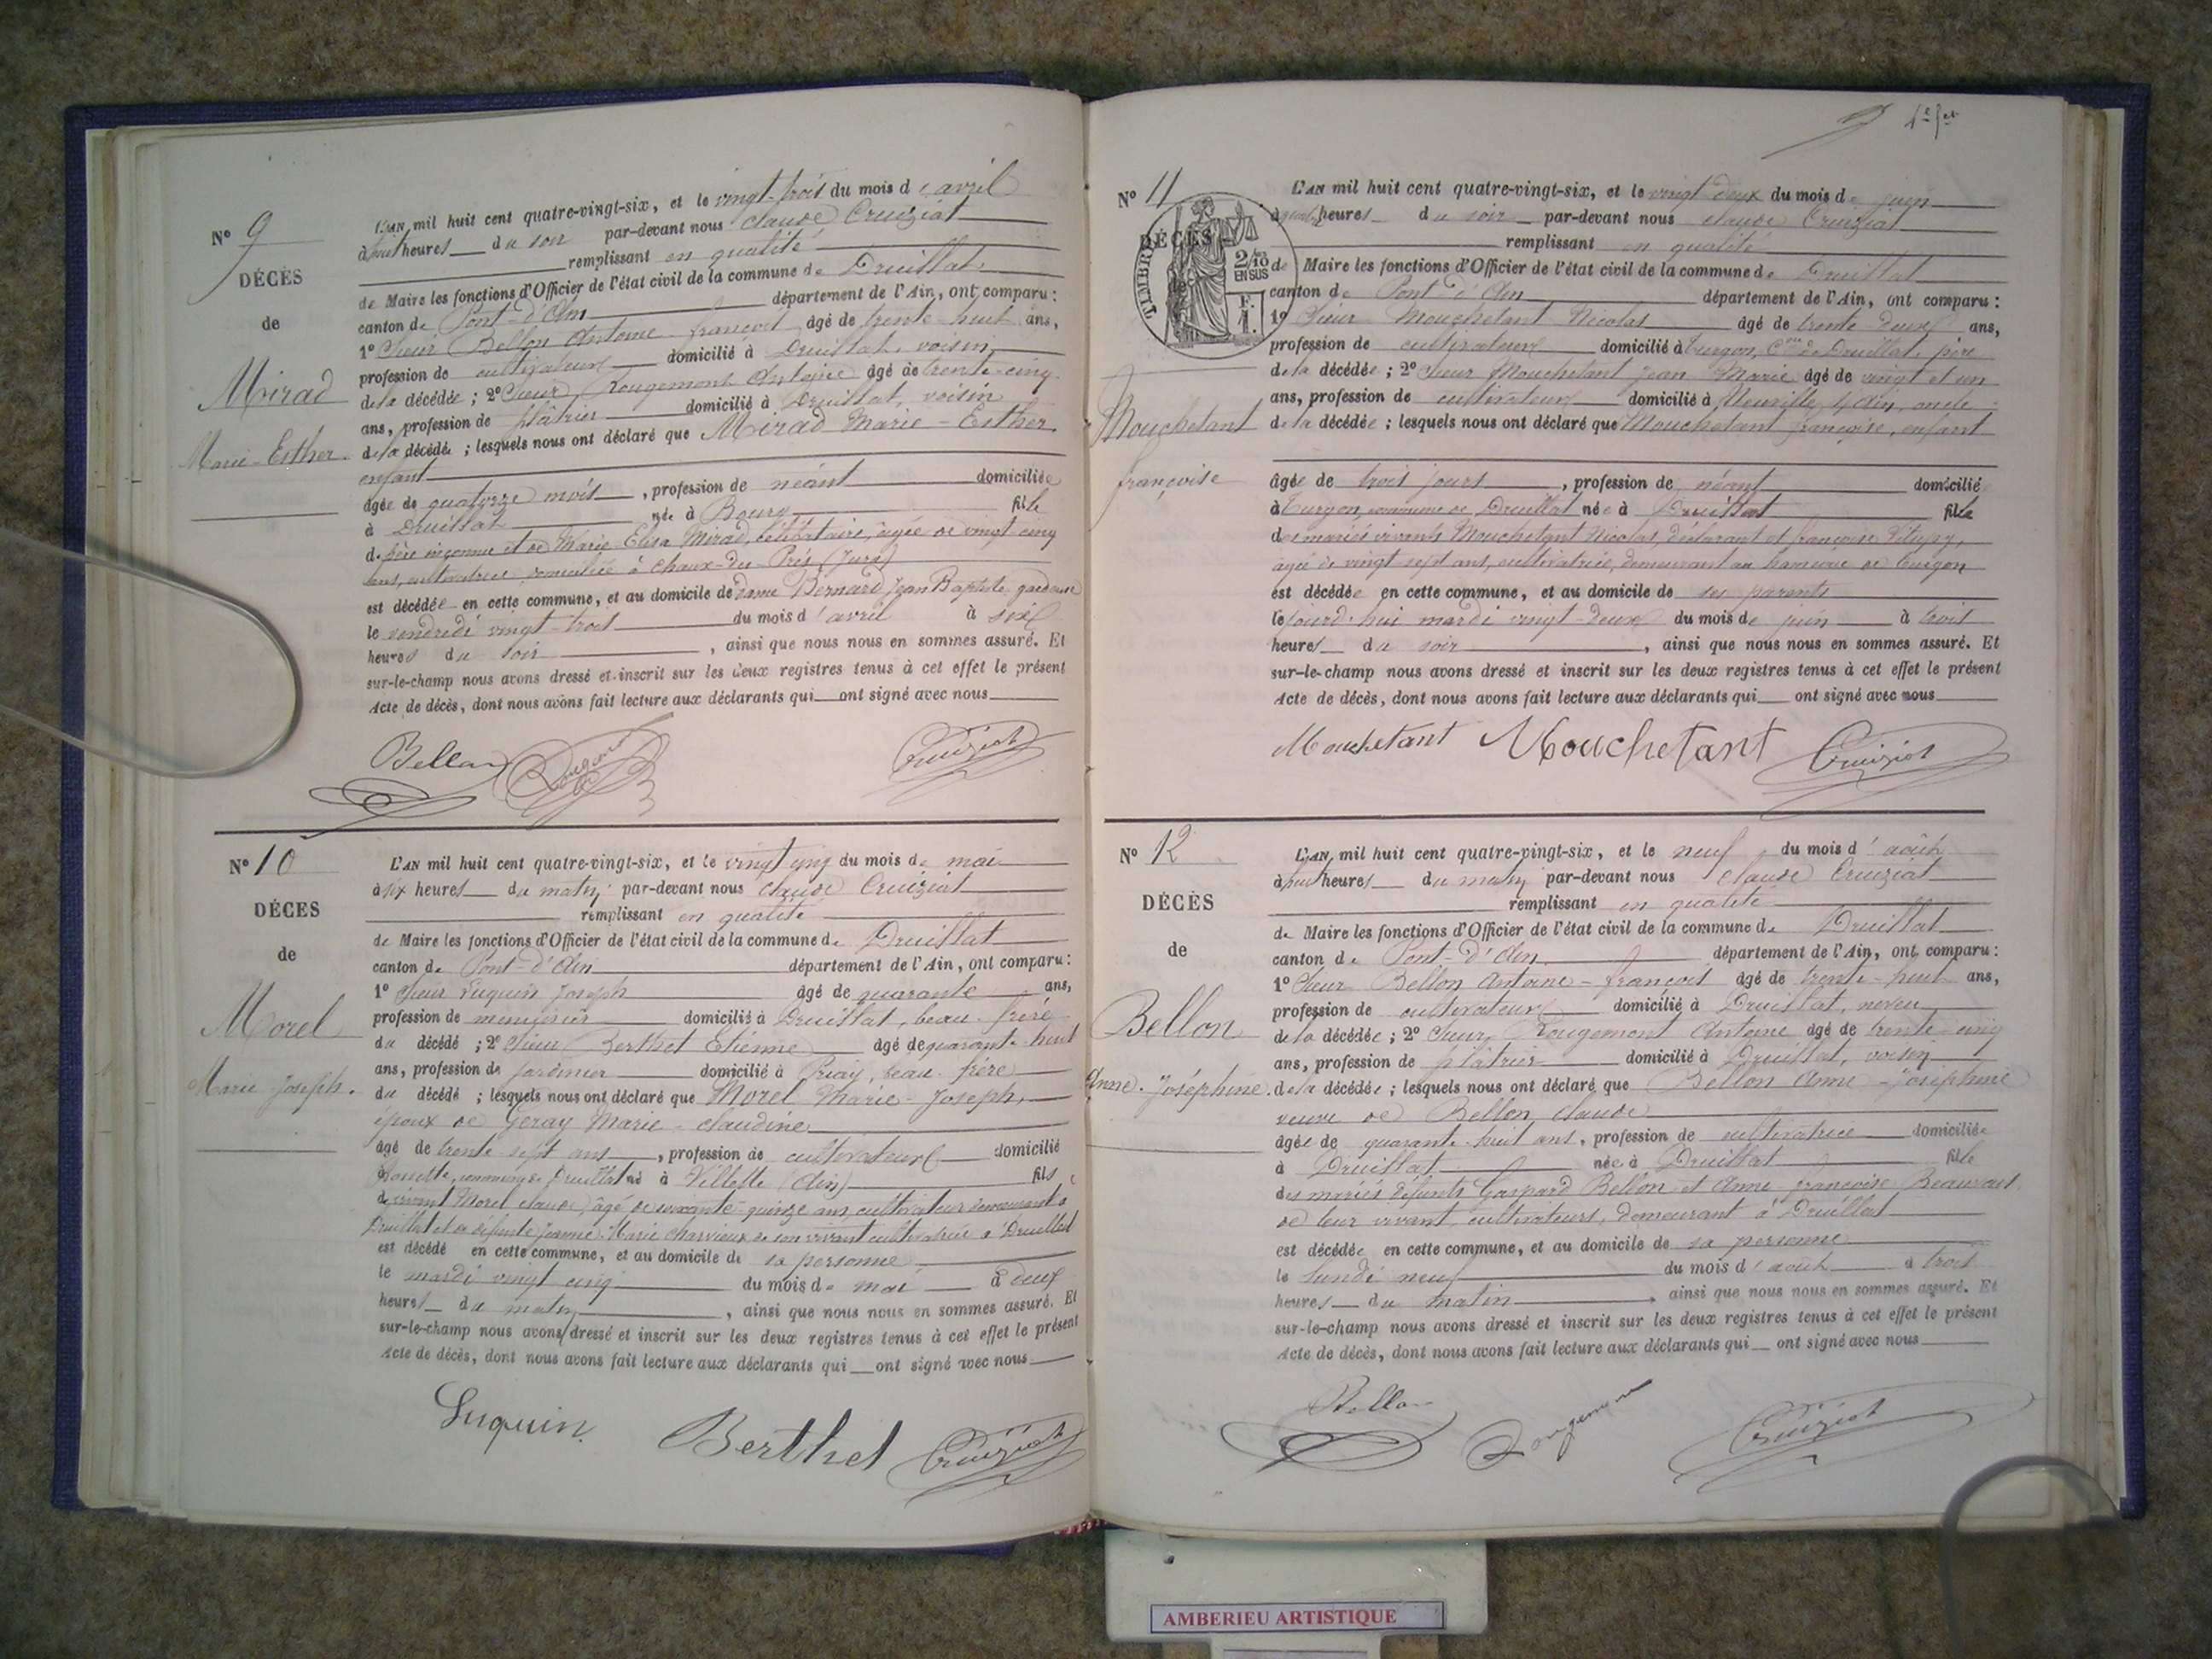 Nº 9
DÉCÈS
de
Mirad
Marie-Esther.
L'AN mil huit cent quatre-vingt-six, et le vingt-trois du mois d'avril
à huit heures du soir par-devant nous Claude Cruiziat
remplissant en qualité
de Maire les fonctions d'Officier de l'état civil de la commune de Druillat
canton de Pont-d'Ain département de l'Ain, ont comparu :
1º Sieur Bellon Antoine François âgé de trente-huit ans,
profession de cultivateur domicilié à Druillat, voisin
de la décédée ; 2º Sieur Rougemont Antoine âgé de trente-cinq
ans, profession de plâtrier domicilié à Druillat, voisin
de la décédée ; lesquels nous ont déclaré que Mirad Marie-Esther
enfant
âgée de quatorze mois, profession de néant domiciliée
à Druillat née à Bourg fille
de père inconnu et de Marie Elisa Mirad, célibataire, âgée de vingt cinq
ans, cultivatrice, domiciliée à Chaux-des-Prés (Jura)
est décédée en cette commune, et au domicile de dame Bernard Jean Baptiste, gardeuse
le vendredi vingt-trois du mois d'avril à six
heures du soir, ainsi que nous nous en sommes assuré. Et
sur-le-champ nous avons dressé et inscrit sur les deux registres tenus à cet effet le présent
Acte de décès, dont nous avons fait lecture aux déclarants qui ont signé avec nous
Bellon Rougemont Cruiziat
Nº 10
DÉCÈS
de
Morel
Marie Joseph.
L'AN mil huit cent quatre-vingt-six, et le vingt cinq du mois de mai
à six heures du matin par-devant nous Claude Cruiziat
remplissant en qualité
de Maire les fonctions d'Officier de l'état civil de la commune de Druillat
canton de Pont-d'Ain département de l'Ain, ont comparu :
1º Sieur Luquin Joseph âgé de quarante ans,
profession de menuisier domicilié à Druillat, beau-frère
du décédé ; 2º Sieur Berthet Etienne âgé de quarante-huit
ans, profession de jardinier domicilié à Priay, beau-frère
du décédé ; lesquels nous ont déclaré que Morel Marie-Joseph,
époux de Geray Marie-Claudine
âgé de trente-sept ans, profession de cultivateur domicilié
commune de Druillat né à Villette (Ain) fils
de vivant Morel Claude, âgé de soixante-quinze ans, cultivateur demeurant à
Druillat et de défunte Jeanne-Marie Charvieux de son vivant cultivatrice à Druillat
est décédé en cette commune, et au domicile de sa personne
le mardi vingt cinq du mois de mai à deux
heures du matin, ainsi que nous nous en sommes assuré. Et
sur-le-champ nous avons dressé et inscrit sur les deux registres tenus à cet effet le présent
Acte de décès, dont nous avons fait lecture aux déclarants qui ont signé avec nous
Luquin Berthet Cruiziat
Nº 11
DÉCÈS
TIMBRE
2/10
EN SUS
F.
1.
de
Mouchetant
Françoise
L'AN mil huit cent quatre-vingt-six, et le vingt-deux du mois de juin
à heures du soir par-devant nous Claude Cruiziat
remplissant en qualité
de Maire les fonctions d'Officier de l'état civil de la commune de Druillat
canton de Pont-d'Ain département de l'Ain, ont comparu :
1º Sieur Mouchetant Nicolas âgé de trente deux ans,
profession de cultivateur domicilié à Turgon, Cne de Druillat, père
de la décédée ; 2º Sieur Mouchetant Jean Marie âgé de vingt et un
ans, profession de cultivateur domicilié à Neuville s/Ain, oncle
de la décédée ; lesquels nous ont déclaré que Mouchetant Françoise, enfant
âgée de trois jours, profession de néant domicilié
à Turgon, commune de Druillat née à Druillat fille
des mariés vivants Mouchetant Nicolas, déclarant et Françoise
âgée de vingt sept ans, cultivatrice, demeurant au hameau de Turgon
est décédée en cette commune, et au domicile de ses parents
le jourd'hui mardi vingt-deux du mois de juin à trois
heures du soir, ainsi que nous nous en sommes assuré. Et
sur-le-champ nous avons dressé et inscrit sur les deux registres tenus à cet effet le présent
Acte de décès, dont nous avons fait lecture aux déclarants qui ont signé avec nous
Mouchetant Mouchetant Cruiziat
Nº 12
DÉCÈS
de
Bellon
Anne-Joséphine.
L'AN mil huit cent quatre-vingt-six, et le neuf du mois d'août
à huit heures du matin par-devant nous Claude Cruiziat
remplissant en qualité
de Maire les fonctions d'Officier de l'état civil de la commune de Druillat
canton de Pont-d'Ain département de l'Ain, ont comparu :
1º Sieur Bellon Antoine-François âgé de trente-huit ans,
profession de cultivateur domicilié à Druillat, neveu
de la décédée ; 2º Sieur Rougemont Antoine âgé de trente-cinq
ans, profession de plâtrier domicilié à Druillat, voisin
de la décédée ; lesquels nous ont déclaré que Bellon Anne-Joséphine
veuve de Bellon Claude
âgée de quarante-huit ans, profession de cultivatrice domiciliée
à Druillat née à Druillat fille
des mariés défunts Gaspard Bellon et Anne-Françoise
de leur vivant cultivateurs, demeurant à Druillat
est décédée en cette commune, et au domicile de sa personne
le lundi neuf du mois d'août à trois
heures du matin, ainsi que nous nous en sommes assuré. Et
sur-le-champ nous avons dressé et inscrit sur les deux registres tenus à cet effet le présent
Acte de décès, dont nous avons fait lecture aux déclarants qui ont signé avec nous
Bellon Rougemont Cruiziat
AMBERIEU ARTISTIQUE